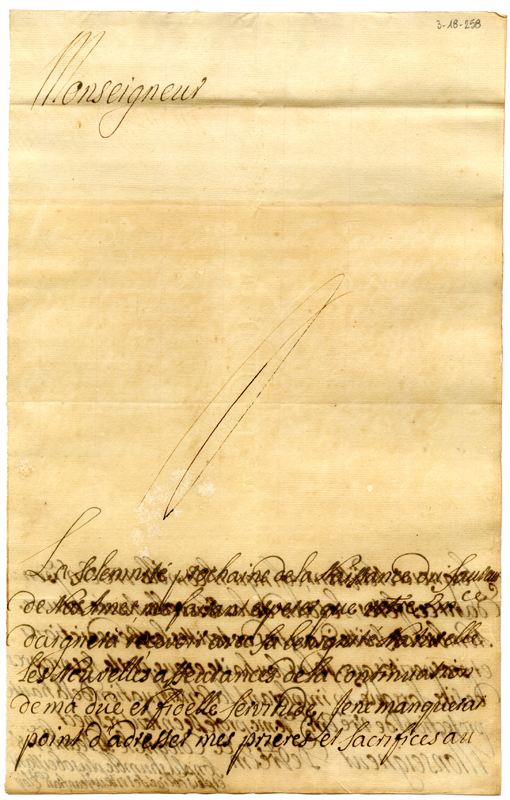 3-18-258
Monseigneur
La Solemnité prochaine de la Naissance du Sauveur
de Nos Ames me faisant esperer que votre Em.ce
daignera recevoir avec sa benignité Naturelle
les Nouvelles asseurances de la Continuation
de ma due et fidelle Servitude, Je ne manquerai
point d'adresser mes prières et Sacrifices au